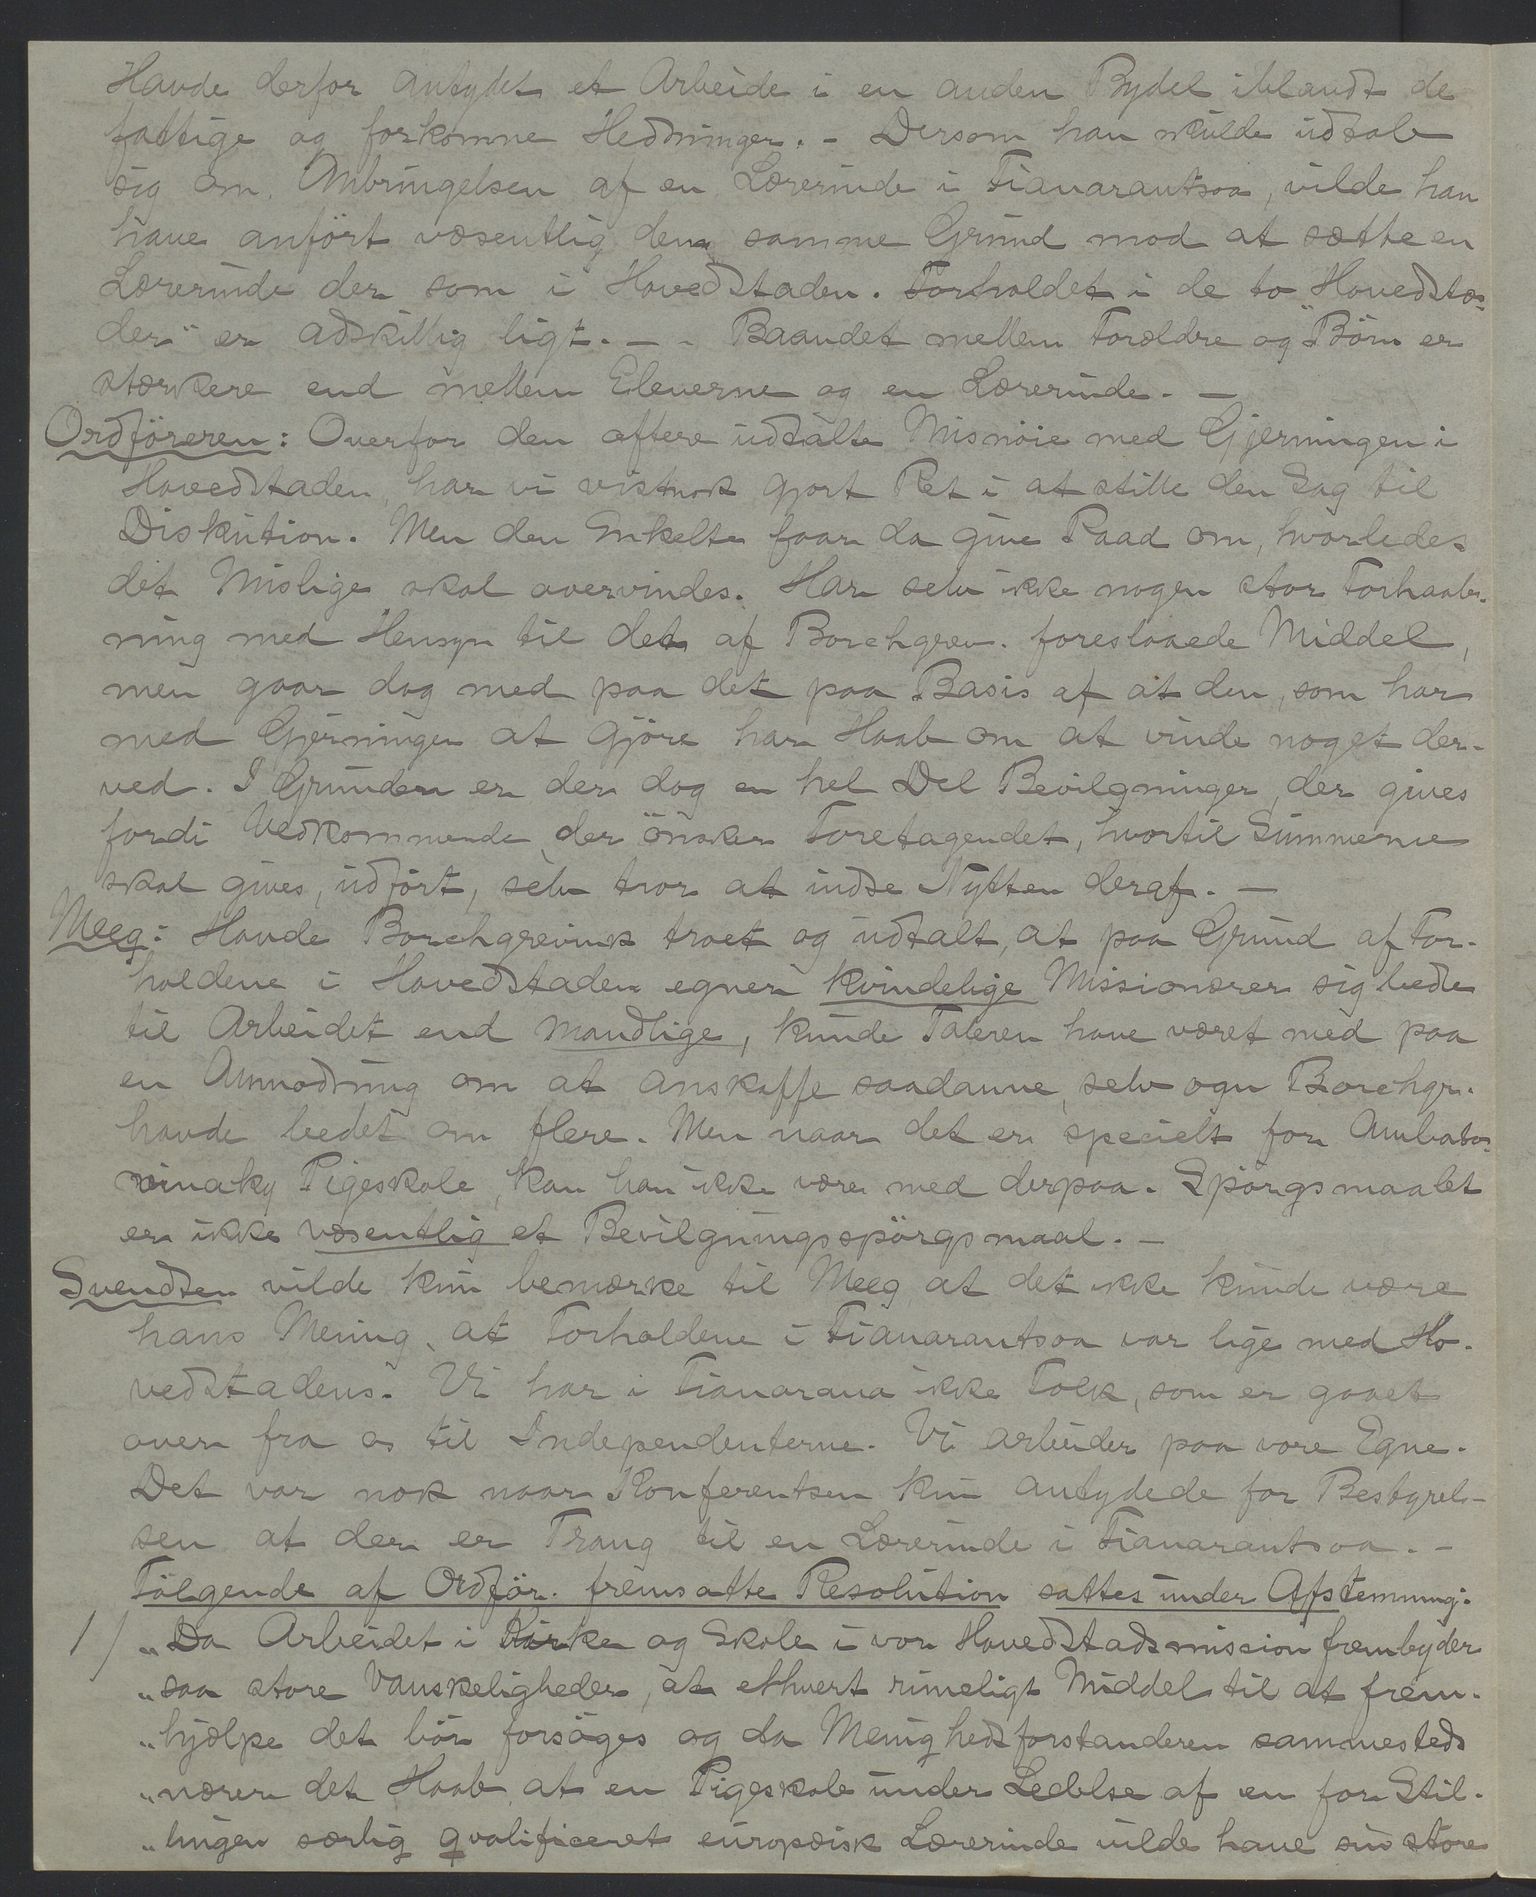 Havde derfor antydet et Arbeide i en anden Bydel iblandt de
fattige og forkomne Hedninger. - Dersom han skulde udtale
sig om Anbringelsen af en Lærerinde i Fianarantsoa, vilde han
have anført væsentlig den samme Grund mod at sætte en
Lærerinde der som i Hovedstaden. Forholdet i de to "Hovedstæ-
der" er adskillig ligt. - - Baandet mellem Forældre og Börn er
stærkere end mellem Eleverne og en Lærerinde. -
Ordföreren: Overfor den oftere udtalte Misnöie med Gjerningen i
Hovedstaden, har vi vistnok gjort Ret i at stille den Sag til
Diskution. Men den Enkelte faar da give Raad om, hvorledes
det Mislige skal overvindes. Har selv ikke nogen stor Forhaab-
ning med Hensyn til det af Borchgrev. foreslaaede Middel,
men gaar dog med paa det paa Basis af at den, som har
med Gjerningen at gjöre har Haab om at vinde noget der-
ved. I Grunden er der dog en hel Del Bevilgninger, der gives
fordi Vedkommende, der önsker Foretagendet, hvortil Summerne
skal gives, udfört, selv tror at indse Nytten deraf. -
Meeg: Havde Borchgrevink troet og udtalt, at paa Grund af For-
holdene i Hovedstaden egner kvindelige Missionærer sig bedre
til Arbeidet end mandlige, kunde Taleren have været med paa
en Anmodning om at anskaffe saadanne, selv om Borchgr.
havde bedet om flere. Men naar det er specielt for Ambato-
vinaky Pigeskole, kan han ikke være med derpaa. Spörgsmaalet
er ikke væsentlig et Bevilgningsspörgsmaal. -
Svendsen vilde kun bemærke til Meeg, at det ikke kunde være
hans Mening, at Forholdene i Fianarantsoa var lige med Ho-
vedstadens. Vi har i Fianarana ikke Folk, som er gaaet
over fra os til Independenterne. Vi arbeider paa vore Egne.
Det var nok naar Konferentsen kun antydede for Bestyrel-
sen at der er Trang til en Lærerinde i Fianarantsoa. -
Fölgende af Ordför. fremsatte Resolution sattes under Afstemning:
1/ "Da Arbeidet i Kirke og Skole i vor Hovedstadsmission frembyder
"saa store Vanskeligheder, at ethvert rimeligt Middel til at frem-
"hjælpe det bör forsöges og da Menighedsforstanderen sammesteds
"nærer det Haab, at en Pigeskole under Ledelse af en for Stil-
"lingen særlig qvalificeret europæisk Lærerinde vilde have sin store